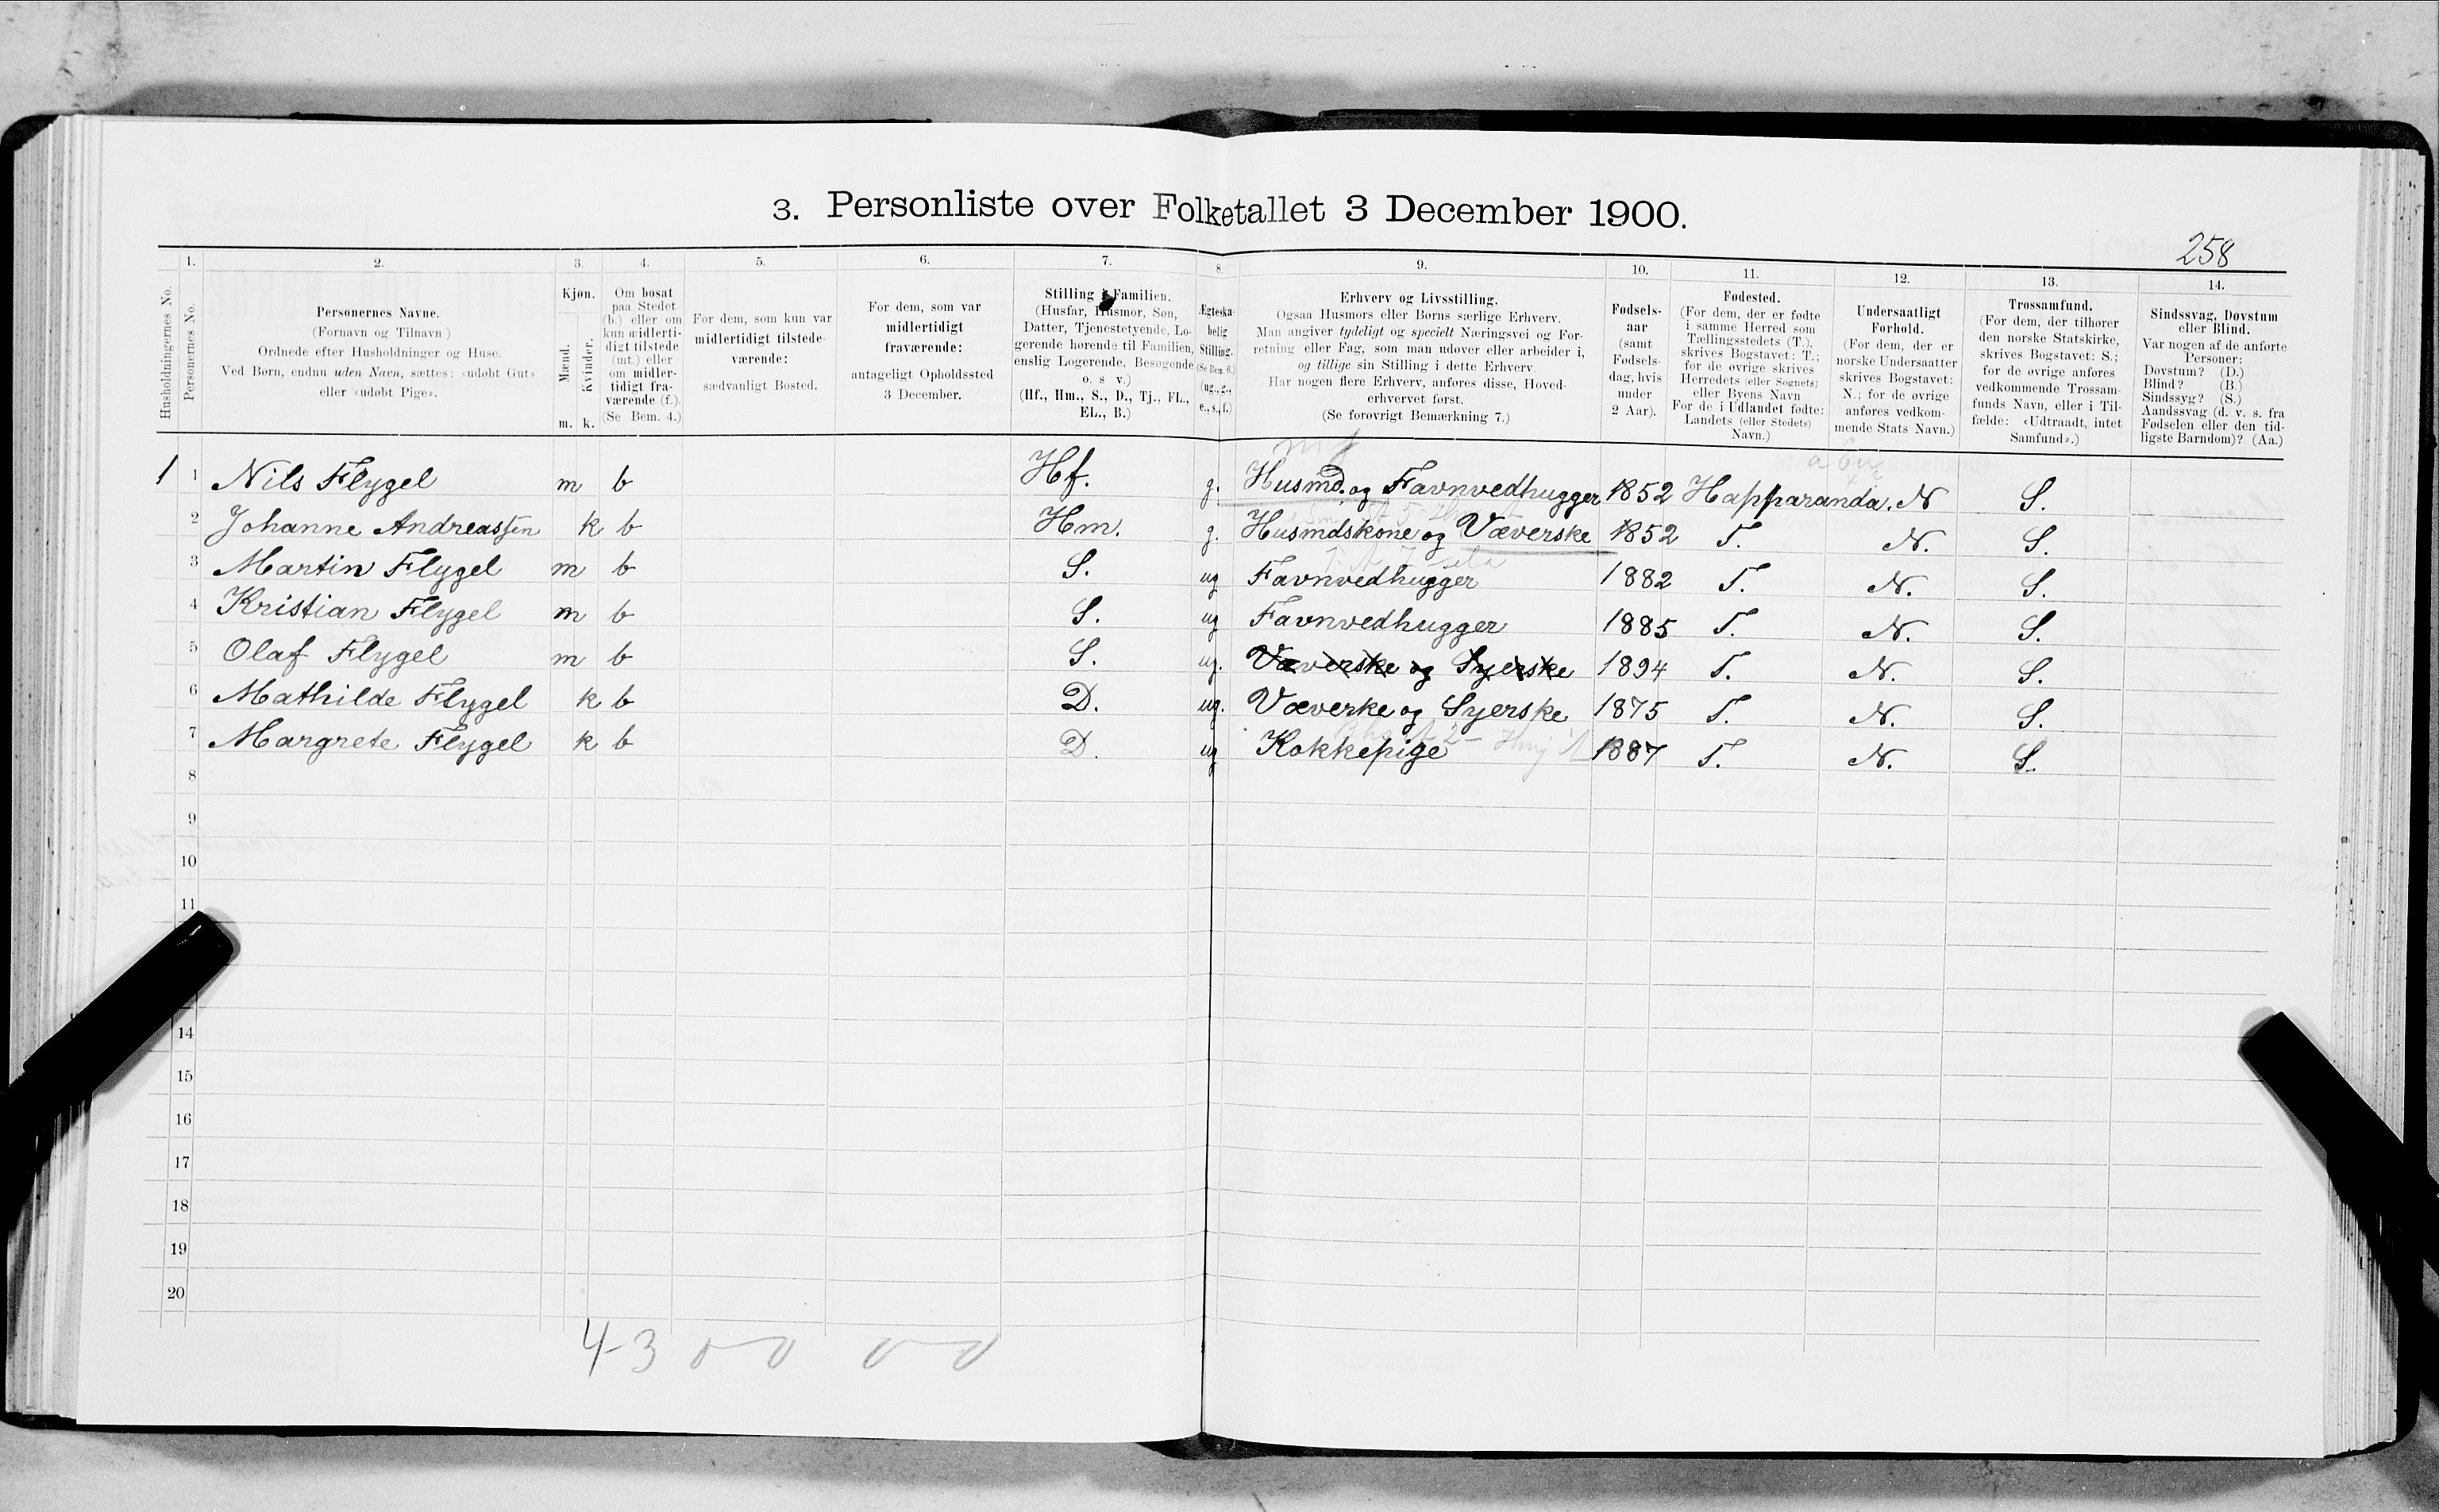 3. Personliste over Folketallet 3 December 1900.
258
1. 2. 3. 4. 5. 6. 7. 8. 9. 10. 11. 12. 13. 14.
Husholdningernes No.
Personernes No.
Personernes Navne.
(Fornavn og Tilnavn)
Ordnede efter Husholdninger og Huse.
Ved Børn, endnu uden Navn, sættes: «udøbt Gut»
eller «udøbt Pige».
Kjøn.
Mænd.
Kvinder.
m. k.
Om bosat
paa Stedet
(b.) eller om
kun midlerti-
digt tilstede
(mt.) eller
om midler-
tidigt fra-
værende (f.).
(Se Bem. 4.)
For dem, som kun var
midlertidigt tilstede-
værende:
sædvanligt Bosted.
For dem, som var
midlertidigt
fraværende:
antageligt Opholdssted
3 December.
Stilling i Familien.
(Husfar, Husmor, Søn,
Datter, Tjenestetyende, Lo-
gerende hørende til Familien,
enslig Logerende, Besøgende
o. s v.)
(Hf., Hm., S., D., Tj., FL.,
EL., B.)
Ægteska-
belig
Stilling.
(Se Bem. 6.)
(ug., g.,
e., s., f.)
Erhverv og Livsstilling.
Ogsaa Husmors eller Børns særlige Erhverv.
Man angiver tydeligt og specielt Næringsvei og For-
retning eller Fag, som man udøver eller arbeider i,
og tillige sin Stilling i dette Erhverv.
Har nogen flere Erhverv, anføres disse, Hoved-
erhvervet først.
(Se forøvrigt Bemærkning 7.)
Fødsels-
aar
(samt
Fødsels-
dag, hvis
under
2 Aar).
Fødested.
(For dem, der er fødte
i samme Herred som
Tællingsstedets (T.),
skrives Bogstavet: T.;
for de øvrige skrives
Herredets (eller Sognets)
eller Byens Navn
For de i Udlandet fødte:
Landets (eller Stedets)
Navn.)
Undersaatligt
Forhold.
(For dem, der er
norske Undersaatter
skrives Bogstavet:
N.; for de øvrige
anføres vedkom-
mende Stats Navn.)
Trossamfund.
(For dem, der tilhører
den norske Statskirke,
skrives Bogstavet: S.;
for de øvrige anføres
vedkommende Trossam-
funds Navn, eller i Til-
fælde: «Udtraadt, intet
Samfund».)
Sindssvag, Døvstum
eller Blind.
Var nogen af de anførte
Personer:
Døvstum? (D.)
Blind? (B.)
Sindssyg? (S.)
Aandssvag (d. v. s. fra
Fødselen eller den tid-
ligste Barndom)? (Aa.)
1 1 Nils Flygel m b Hf. g. Husmd. og Favnvedhugger 1852 Happaranda. N S.
2 Johanne Andreassen k b Hm. g. Husmdskone og Væverske 1852 T. N. S.
3 Martin Flygel m b S. ug Favnvedhugger 1882 T. N. S.
4 Kristian Flygel m b S. ug Favnvedhugger 1885 T. N. S.
5 Olaf Flygel m b S. ug. Væverske og Syerske 1894 T. N. S.
6 Mathilde Flygel k b D. ug. Væverke og Syerske 1875 T. N. S.
7 Margrete Flygel k b D. ug Kokkepige 1887 T. N. S.
8
9
10
11
14
15
16
17
18
19
20
4-3 0-0 0-0